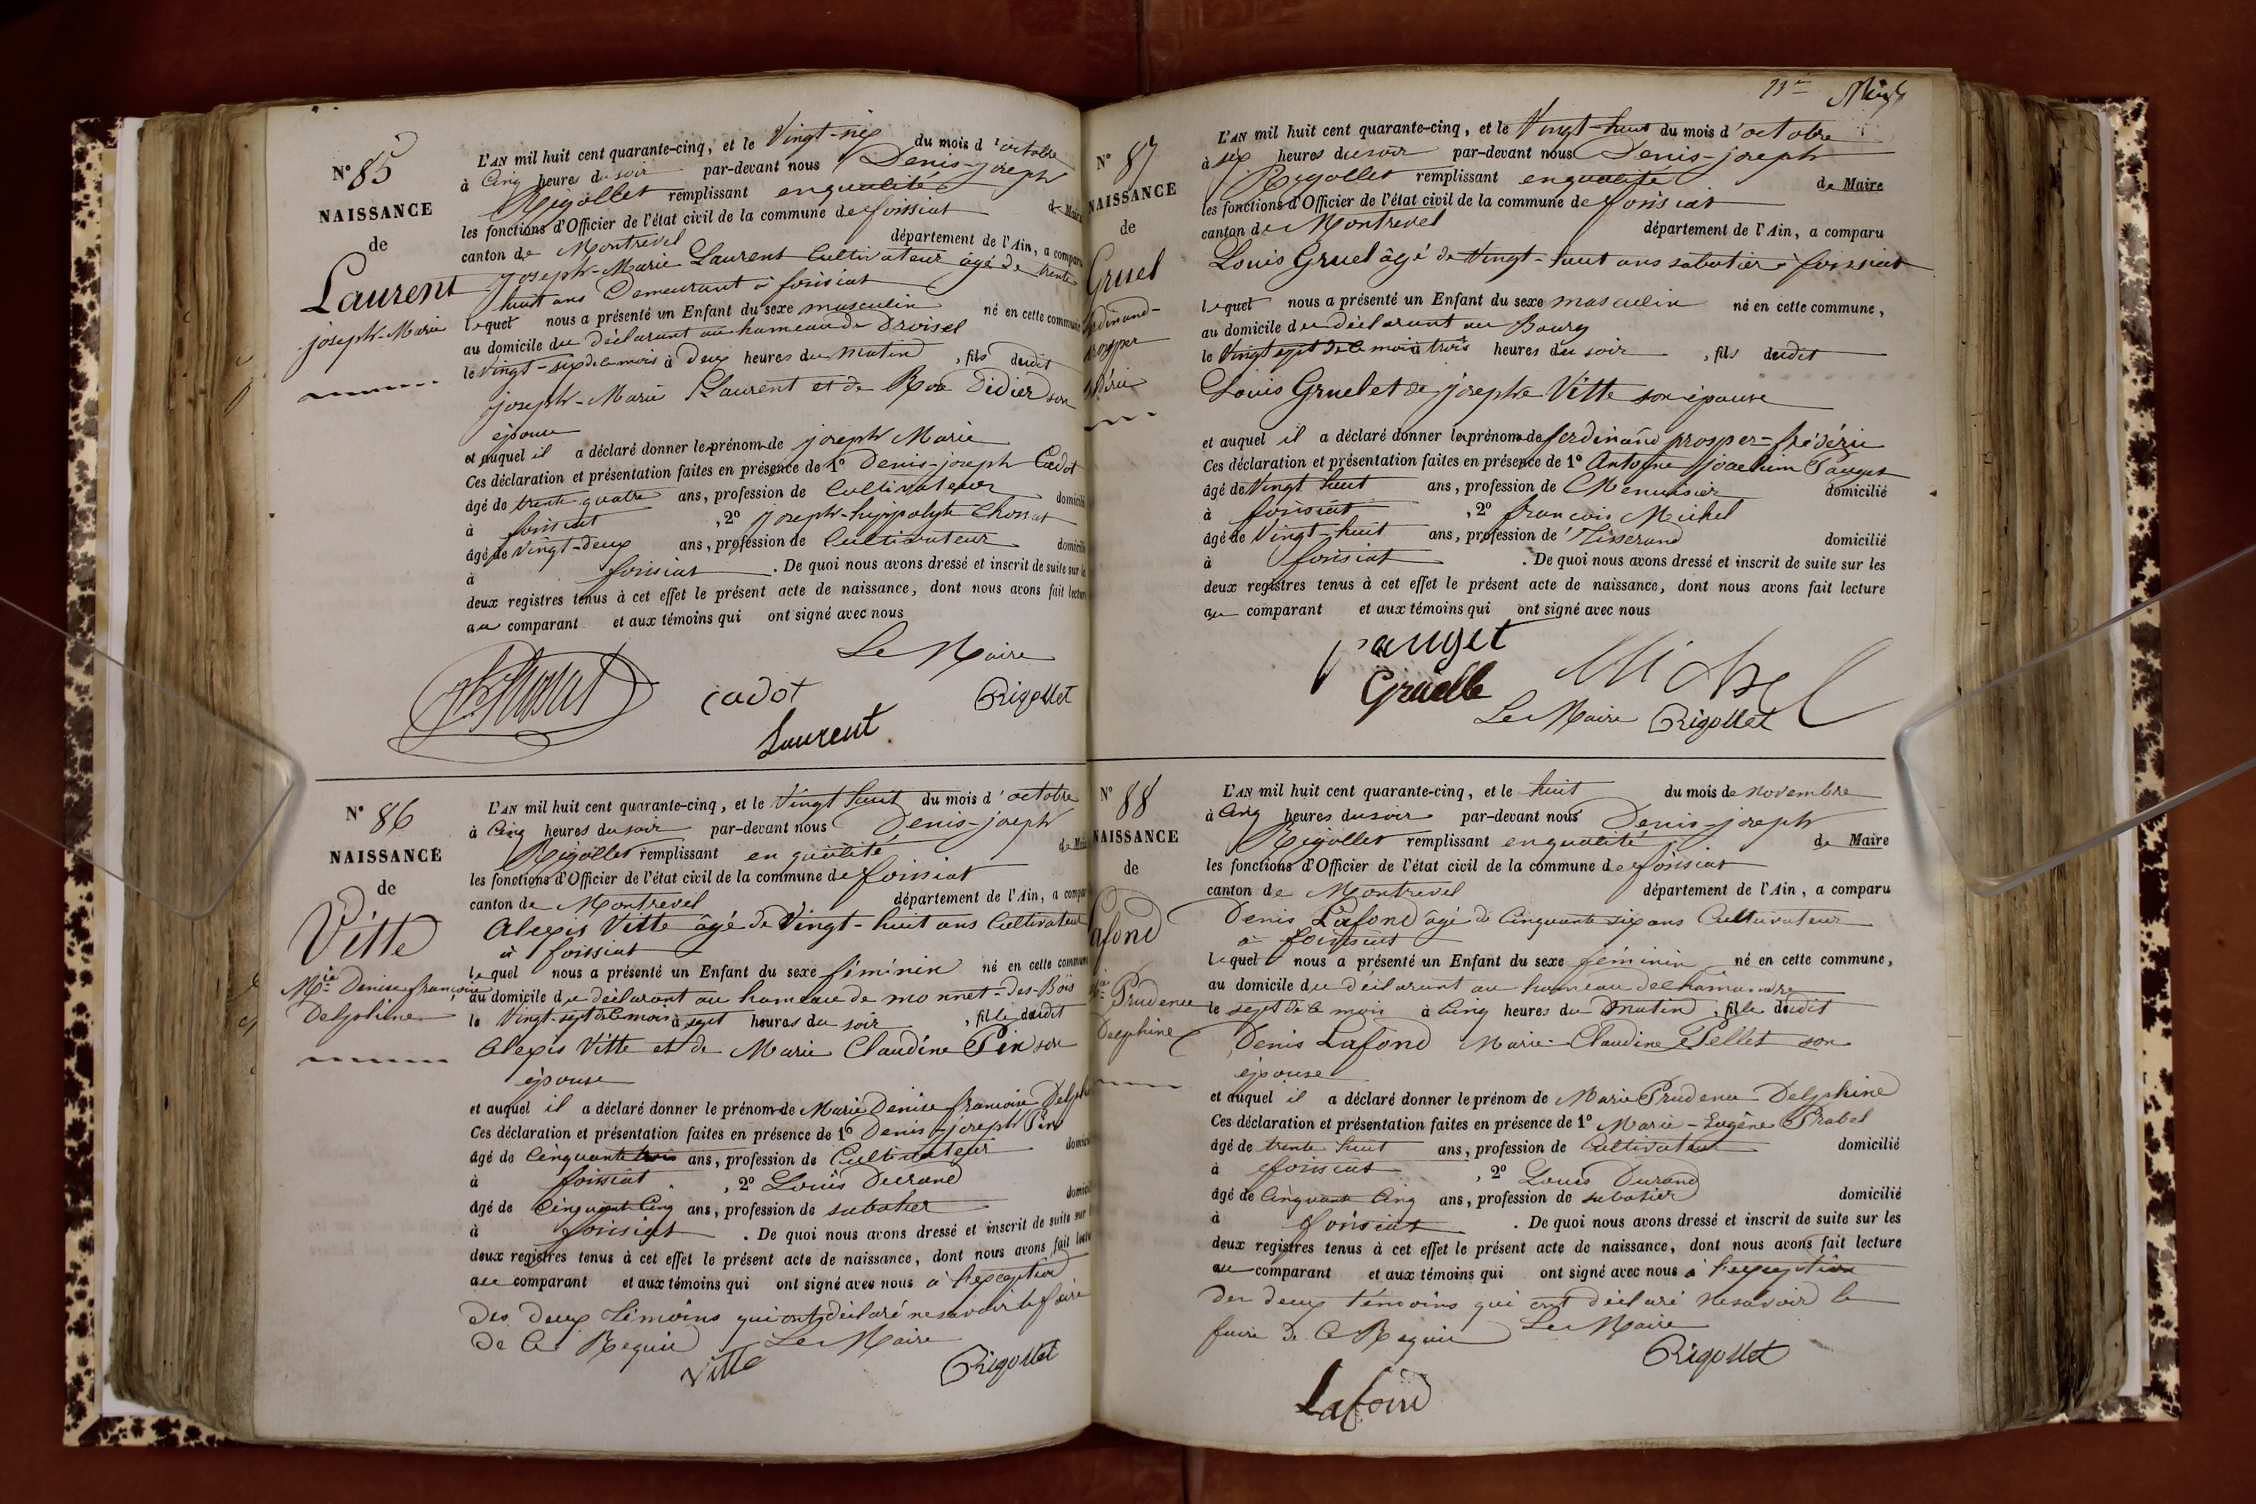 N° 85
NAISSANCE
de
Laurent
joseph-Marie
L'AN mil huit cent quarante-cinq, et le Vingt-six du mois d'octobre
à Cinq heures du soir par-devant nous Denis-joseph
Rigollet remplissant en qualité de Maire
les fonctions d'Officier de l'état civil de la commune de foissiat
canton de Montrevel département de l'Ain, a comparu
joseph-Marie Laurent Cultivateur âgé de trente
huit ans Demeurant à foissiat
lequel nous a présenté un Enfant du sexe masculin né en cette commune
au domicile du déclarant au hameau de
le Vingt-six de ce mois à Deux heures du matin, fils dudit
joseph-Marie Laurent et de Didier son
épouse
et auquel il a déclaré donner les prénoms de joseph Marie
Ces déclaration et présentation faites en présence de 1° Denis-joseph Cadot
âgé de trente-quatre ans, profession de Cultivateur domicilié
à foissiat, 2° joseph-hyppolyte Chossat
âgé de vingt-deux ans, profession de Cultivateur domicilié
à foissiat. De quoi nous avons dressé et inscrit de suite sur les
deux registres tenus à cet effet le présent acte de naissance, dont nous avons fait lecture
au comparant et aux témoins qui ont signé avec nous
Le Maire
cadot Rigollet
Laurent
N° 86
NAISSANCE
de
Vitte
Mie Denise françoise
Delphine
L'AN mil huit cent quarante-cinq, et le Vingt huit du mois d'octobre
à Cinq heures du soir par-devant nous Denis-joseph
Rigollet remplissant en qualité de Maire
les fonctions d'Officier de l'état civil de la commune de foissiat
canton de Montrevel département de l'Ain, a comparu
Alexis Vitte âgé de Vingt-huit ans Cultivateur
à foissiat
lequel nous a présenté un Enfant du sexe féminin né en cette commune
au domicile du déclarant au hameau de monnet-des-Bois
le Vingt-sept de ce mois à sept heures du soir, fille dudit
Alexis Vitte et de Marie Claudine Pin son
épouse
et auquel il a déclaré donner le prénom de Marie Denise françoise Delphine
Ces déclaration et présentation faites en présence de 1° Denis-joseph Pin
âgé de Cinquante trois ans, profession de Cultivateur domicilié
à foissiat, 2° Louis Durand
âgé de Cinquante Cinq ans, profession de sabotier domicilié
à foissiat. De quoi nous avons dressé et inscrit de suite sur les
deux registres tenus à cet effet le présent acte de naissance, dont nous avons fait lecture
au comparant et aux témoins qui ont signé avec nous à l'exception
des deux témoins qui ont déclaré ne savoir le faire
de ce Requis Le Maire
Vitte Rigollet
N° 87
NAISSANCE
de
Gruel
L'AN mil huit cent quarante-cinq, et le Vingt-huit du mois d'octobre
à six heures du soir par-devant nous Denis-joseph
Rigollet remplissant en qualité de Maire
les fonctions d'Officier de l'état civil de la commune de foissiat
canton de Montrevel département de l'Ain, a comparu
Louis Gruel âgé de Vingt-huit ans sabotier à foissiat
lequel nous a présenté un Enfant du sexe masculin né en cette commune,
au domicile du déclarant au Bourg
le Vingt sept de ce mois à trois heures du soir, fils dudit
Louis Gruel et de josephe Vitte son épouse
et auquel il a déclaré donner les prénoms de ferdinand prosper-frédéric
Ces déclaration et présentation faites en présence de 1° Antoine joachim Pauget
âgé de Vingt huit ans, profession de Menuisier domicilié
à foissiat, 2° françois Michel
âgé de Vingt-huit ans, profession de Tisserand domicilié
à foissiat. De quoi nous avons dressé et inscrit de suite sur les
deux registres tenus à cet effet le présent acte de naissance, dont nous avons fait lecture
au comparant et aux témoins qui ont signé avec nous
Pauget
Michel
Gruelle
Le Maire Rigollet
N° 88
NAISSANCE
de
Lafond
Mie Prudence
Delphine
L'AN mil huit cent quarante-cinq, et le huit du mois de novembre
à Cinq heures du soir par-devant nous Denis-joseph
Rigollet remplissant en qualité de Maire
les fonctions d'Officier de l'état civil de la commune de foissiat
canton de Montrevel département de l'Ain, a comparu
Denis Lafond âgé de Cinquante six ans Cultivateur
à foissiat
lequel nous a présenté un Enfant du sexe féminin né en cette commune,
au domicile du déclarant au hameau de
le sept de ce mois à Cinq heures du matin, fille dudit
Denis Lafond Marie-Claudine Pellet son
épouse
et auquel il a déclaré donner le prénom de Marie Prudence Delphine
Ces déclaration et présentation faites en présence de 1° Marie-Eugène Prabel
âgé de trente huit ans, profession de Cultivateur domicilié
à foissiat, 2° Louis Durand
âgé de Cinquante Cinq ans, profession de sabotier domicilié
à foissiat. De quoi nous avons dressé et inscrit de suite sur les
deux registres tenus à cet effet le présent acte de naissance, dont nous avons fait lecture
au comparant et aux témoins qui ont signé avec nous à l'exception
des deux témoins qui ont déclaré ne savoir le
faire de ce Requis Le Maire
Rigollet
Lafond